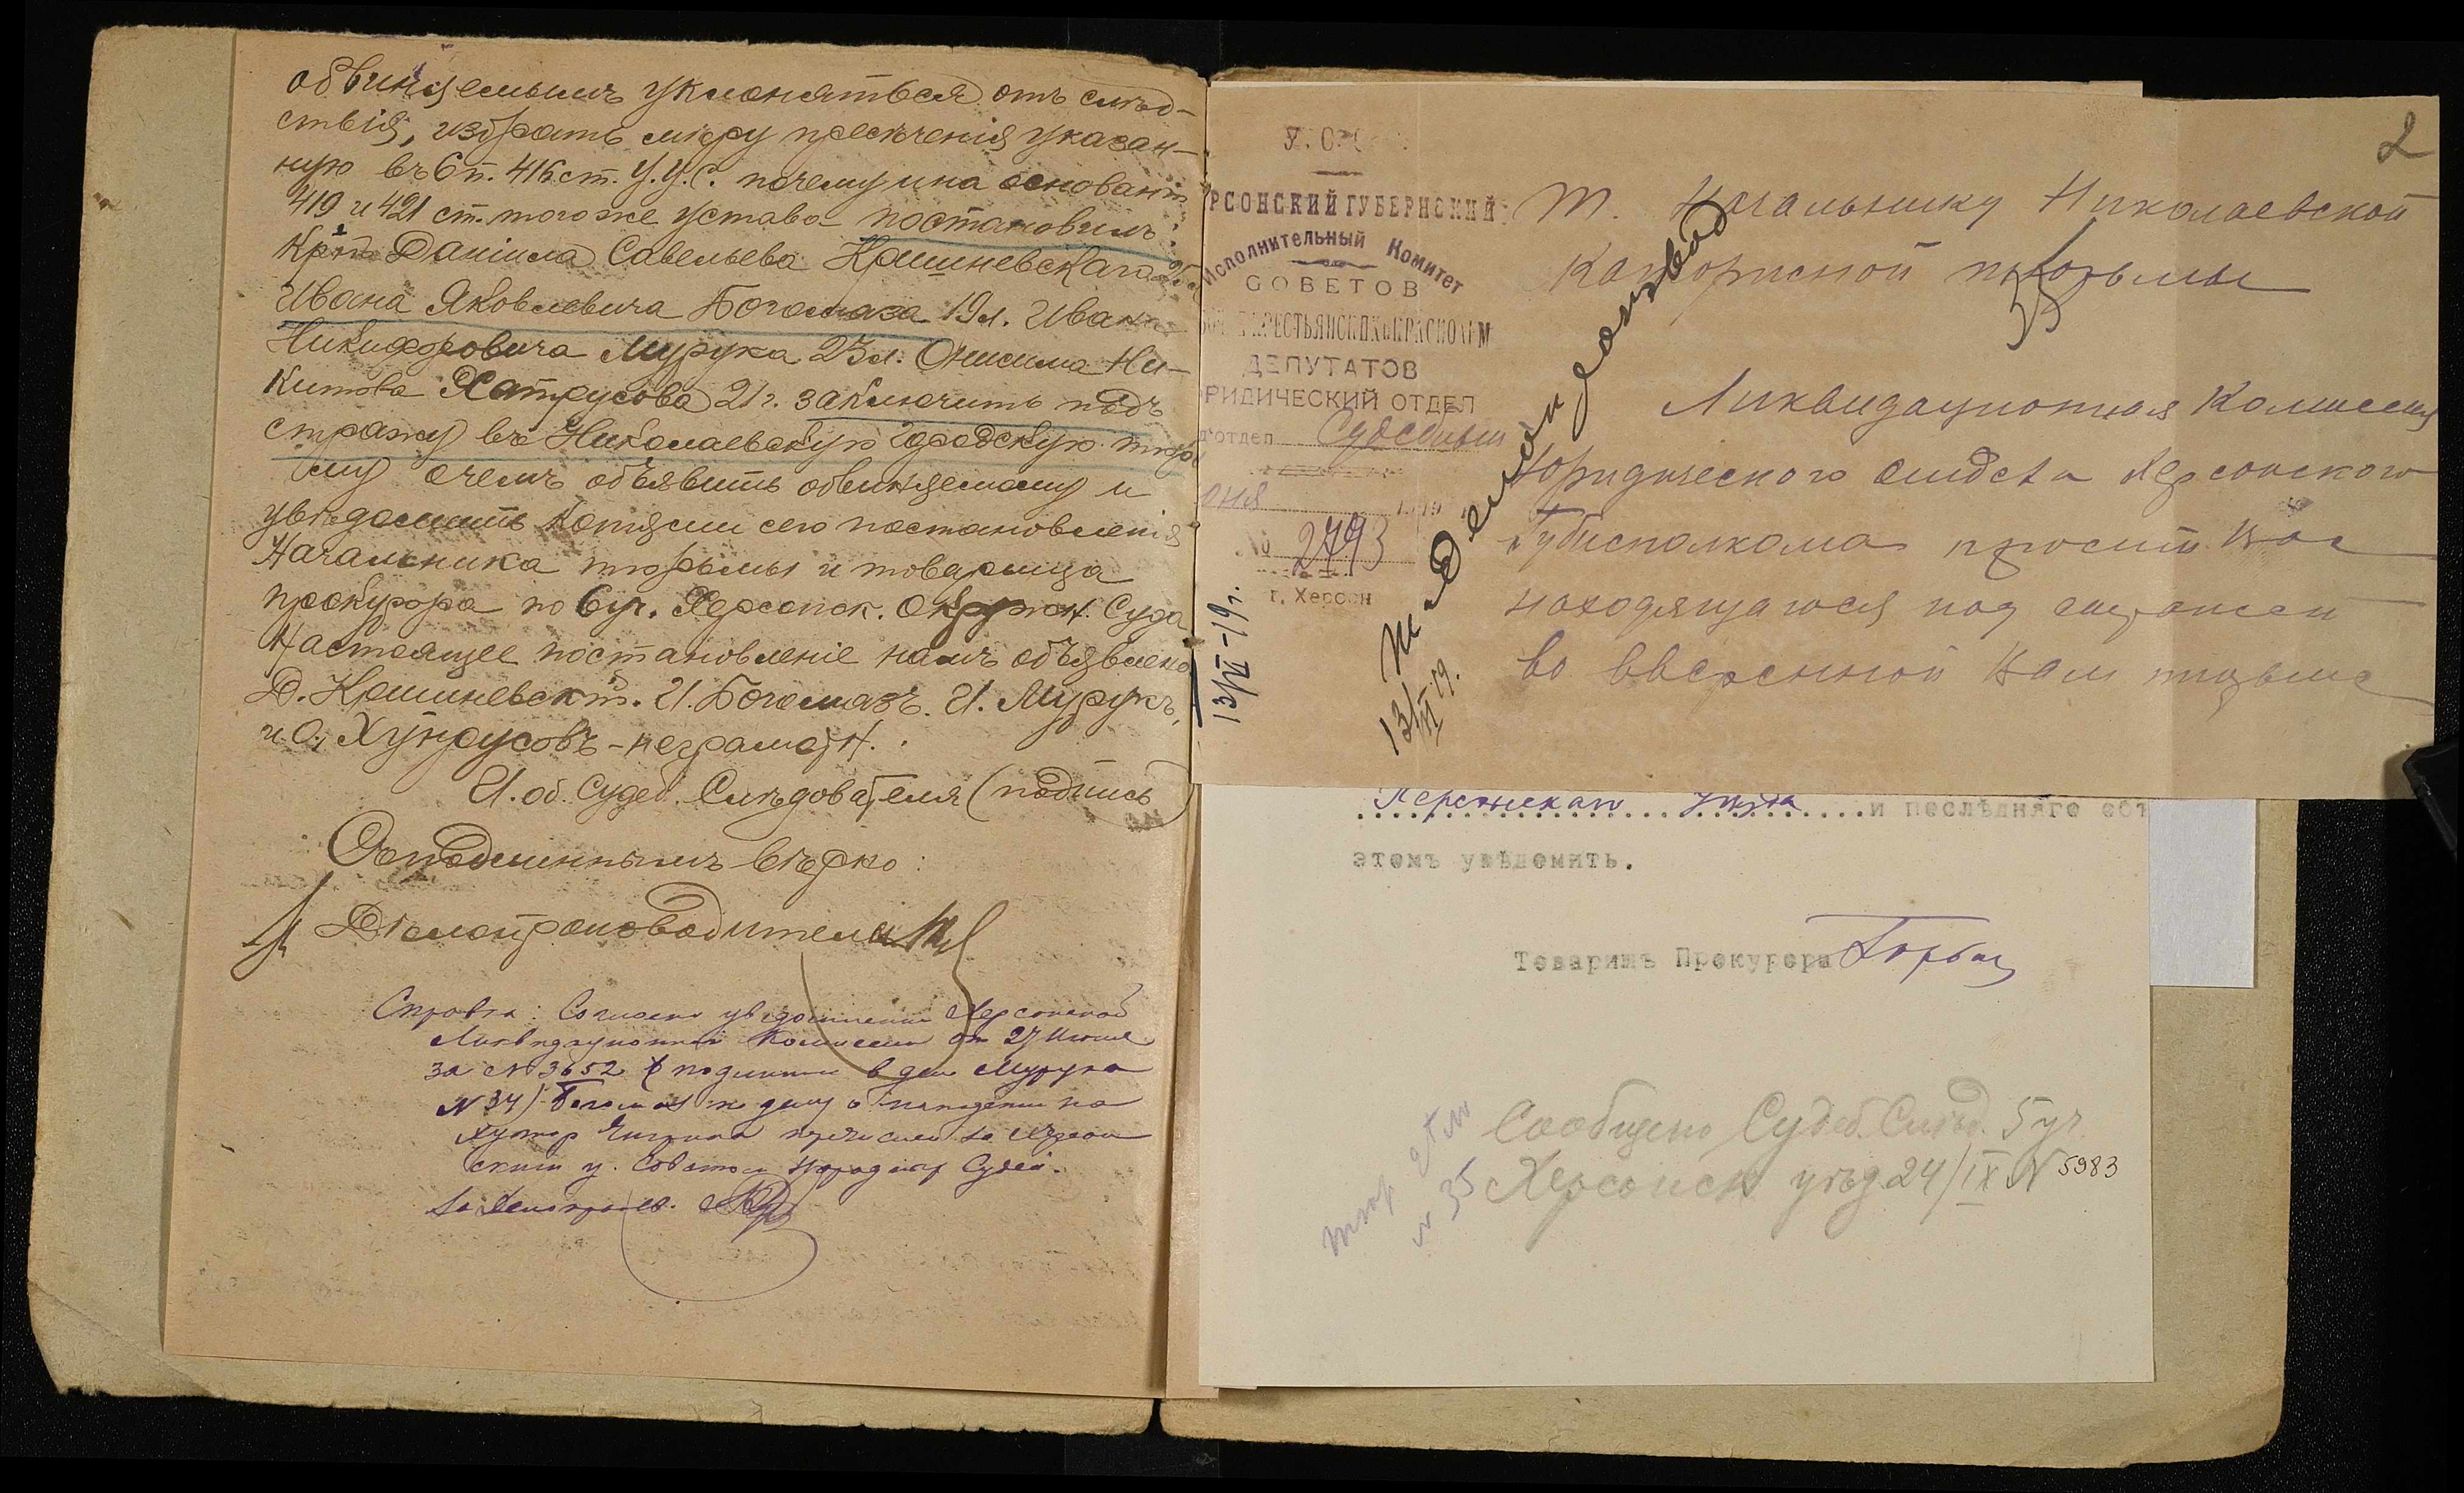 обвиняемымъ уклоняться отъ слѣд-
ствія, избрать мѣру пресѣченія указан-
ную въ 6 п. 416 ст. У.У.С. почему и на основан.
419 и 421 ст. того же устава постановилъ:
Кр. Даніила Савельева Кришневскаго
Ивана Яковлевича Богомаза 19 л. Ивана
Никифоровича Мурука 23 л. Онисима Ни-
китова 21 г. заключить подъ
стражу въ Николаевскую городскую тюрь
му о чемъ объявить обвиняемому и
увѣдомить копіями сего постановленія
Начальника тюрьмы и товарища
прокурора по 6 уч. Херсонск. Окружн. Суда
Настоящее постановленіе намъ объявлено
Д. Кришневскій. И. Богомазъ. И. Мурукъ,
и О. Хунрусовъ - неграмотн.
И. об. Судеб. Слѣдователя (подпись)
Съ подлиннымъ вѣрно:
Дѣлопроизводитель
Справка: Согласно уведомлении Херсонской
Ликвидационной Комиссии от 27 Июня
за № 3652 (подлинник в деле Мурука
№ 34) Богомаз по делу о нападении на
хутор перечислен за Херсон
ским у. Советом Народных Судей.
За
2
У. С.
РСОНСКИЙ ГУБЕРНСКИЙ
Исполнительный Комитет
СОВЕТОВ
КРЕСТЬЯНСКИХ и КРАСНОАРМ
ДЕПУТАТОВ
РИДИЧЕСКИЙ ОТДЕЛ
отдел Судебный
юня 1919
№ 2793
г. Херсон
13/VI-19 г.
13/VI 19.
Т. Начальнику Николаевской
Каторжной тюрьмы
35
Ликвидационная Комиссия
Юридического отдела Херсонского
Губисполкома просит Вас
находящагося под стражей
во вверенной Вам тюрьме
Херсонскаго уѣзда и послѣдняго объ
этомъ увѣдомить.
Товарищъ Прокурора
Сообщено Судеб. Слѣд. 5 уч
Херсонск уѣзд. 24/IX № 5983
№ 35